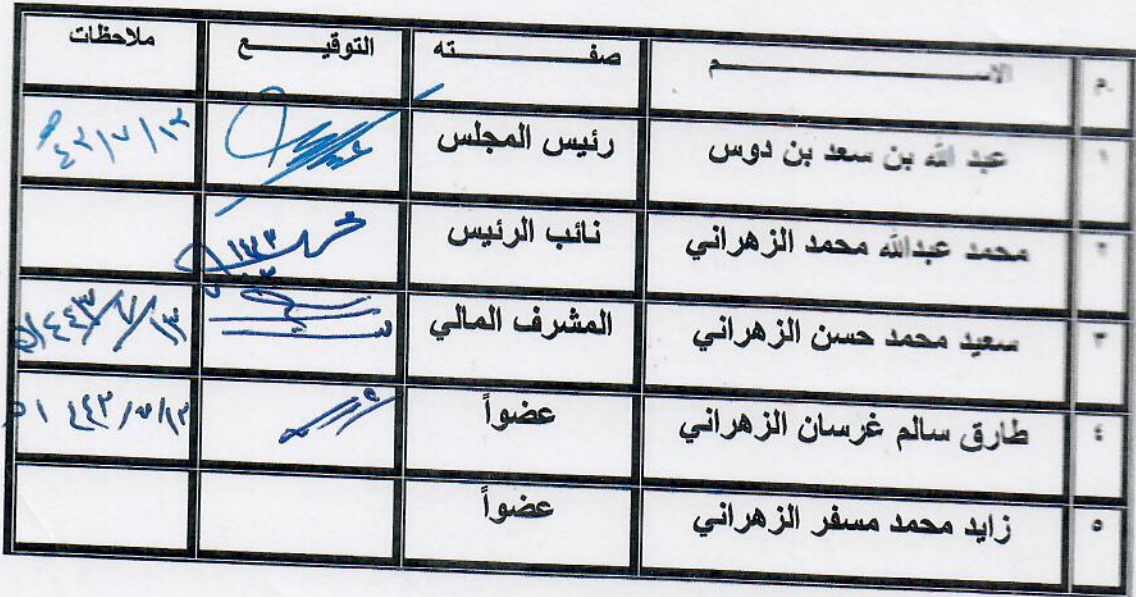 م. الاســـــــم صفــــــته التوقيـــــع ملاحظات
١ عبد الله بن سعد بن دوس رئيس المجلس
٢ محمد عبدالله محمد الزهراني نائب الرئيس
٣ سعيد محمد حسن الزهراني المشرف المالي
٤ طارق سالم غرسان الزهراني عضواً
٥ زايد محمد مسفر الزهراني عضواً